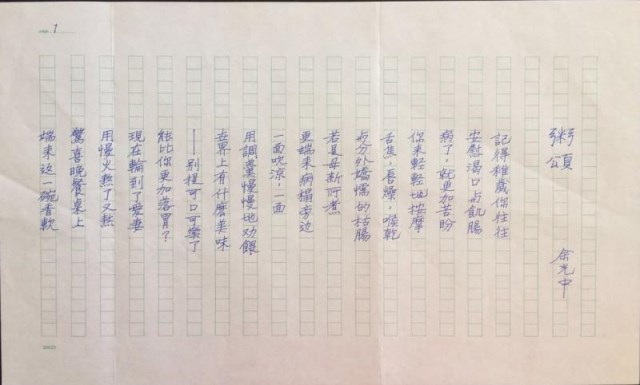 1
粥頌
余光中
記得稚歲你往往
安慰渴口與飢腸
病了，就更加苦盼
你來輕輕地按摩
舌焦，唇燥，喉乾
與分外嬌懦的枯腸
若是母親所煮
更端來病榻旁邊
一面吹涼，一面
用調羹慢慢地勸餵
世界上有什麼美味
——別提可口可樂了
能比你更加落胃？
現在輪到了愛妻
用慢火熬了又熬
驚喜晚餐桌上
端來這一碗香軟